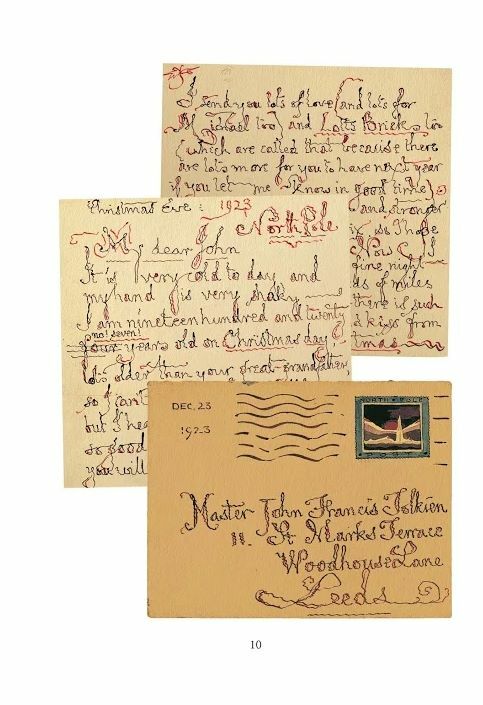 I send you lots of love (and lots for
Michael too) and Lotts Bricks too
(which are called that because there
are lots more for you to have next year
if you let me know in good time)
and stronger
Now I
fine night
ds of miles
there is such
d kiss from
tmas
Christmas Eve : 1923
North Pole
My dear John
It is very cold to day and
my hand is very shaky
I am nineteenhundred and twenty
no! seven!
four years old on Christmas day
lots older than your great-grandfather
so I can't
but I hea
so good
you will
DEC. 23
1923
NORTH POLE
Master John Francis Tolkien
11. St Marks Terrace
Woodhouse Lane
Leeds
10